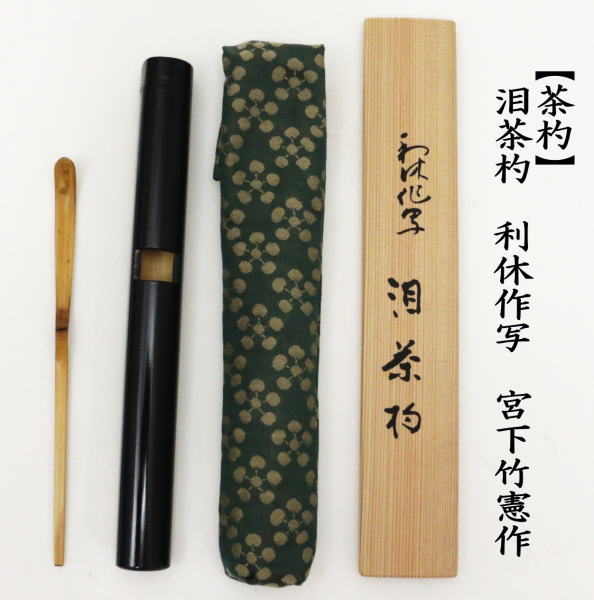 【茶杓】
泪茶杓　利休作写　宮下竹憲作
利休作写
泪茶杓